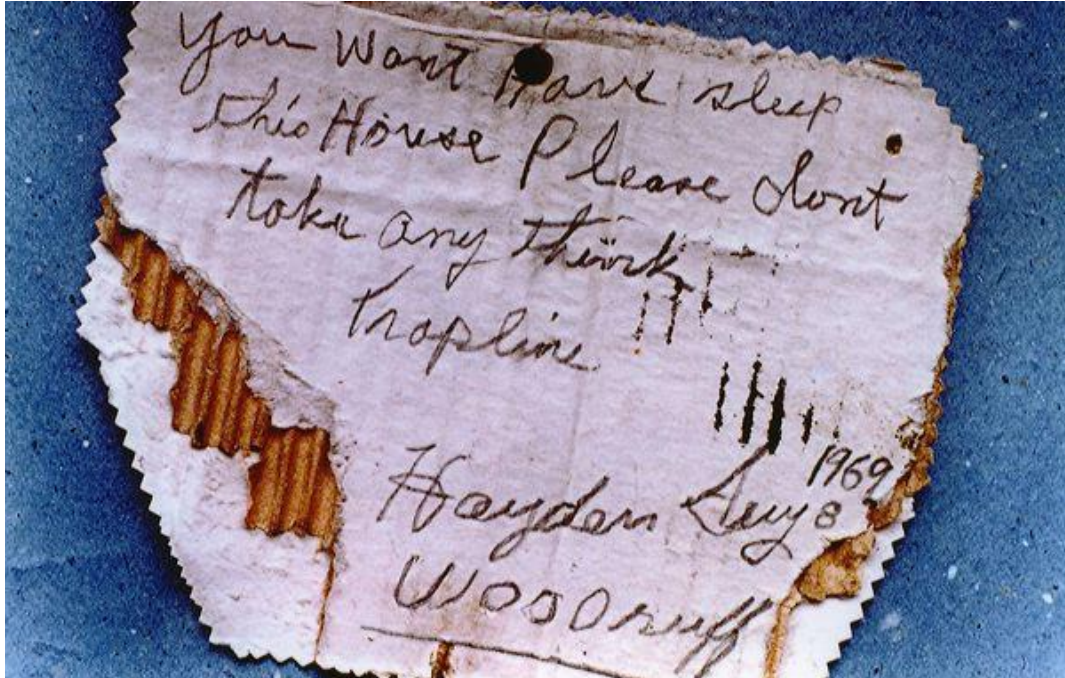 You Want Have sleep
this House Please dont
take any think
Trapline
1969
Hayden Aug 8
Woodruff